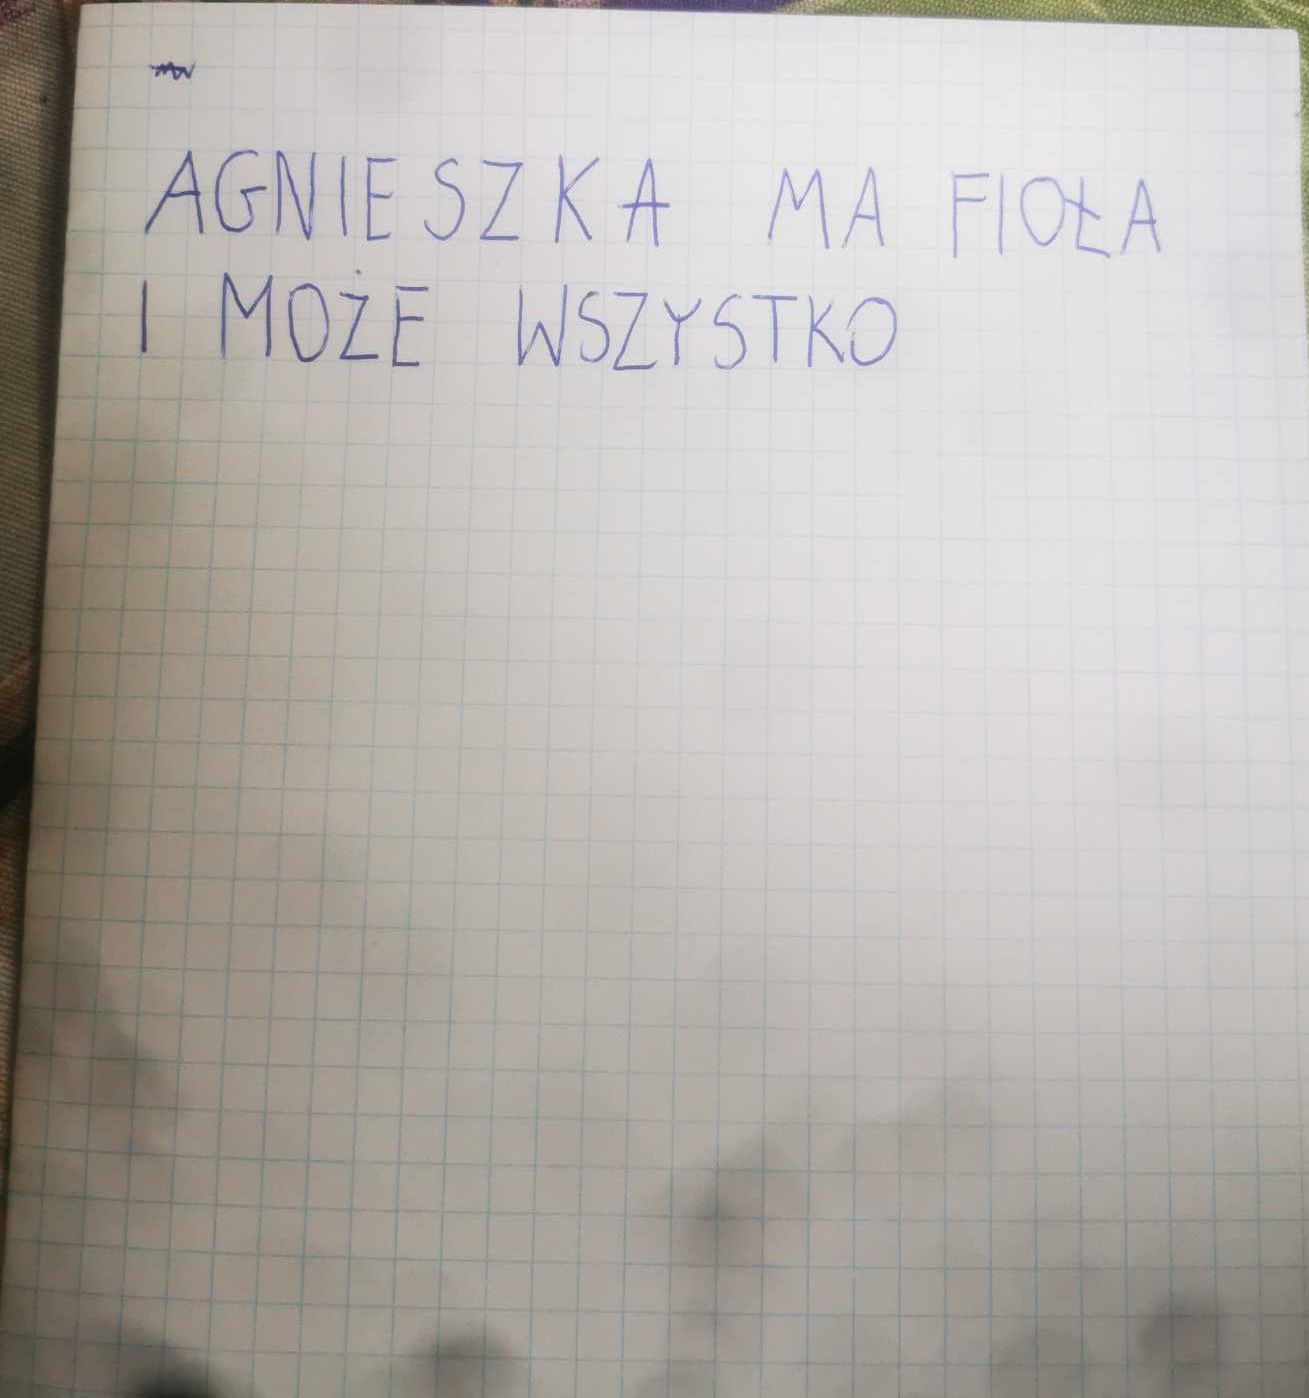 AGNIESZKA MA FIOŁA
I MOŻE WSZYSTKO